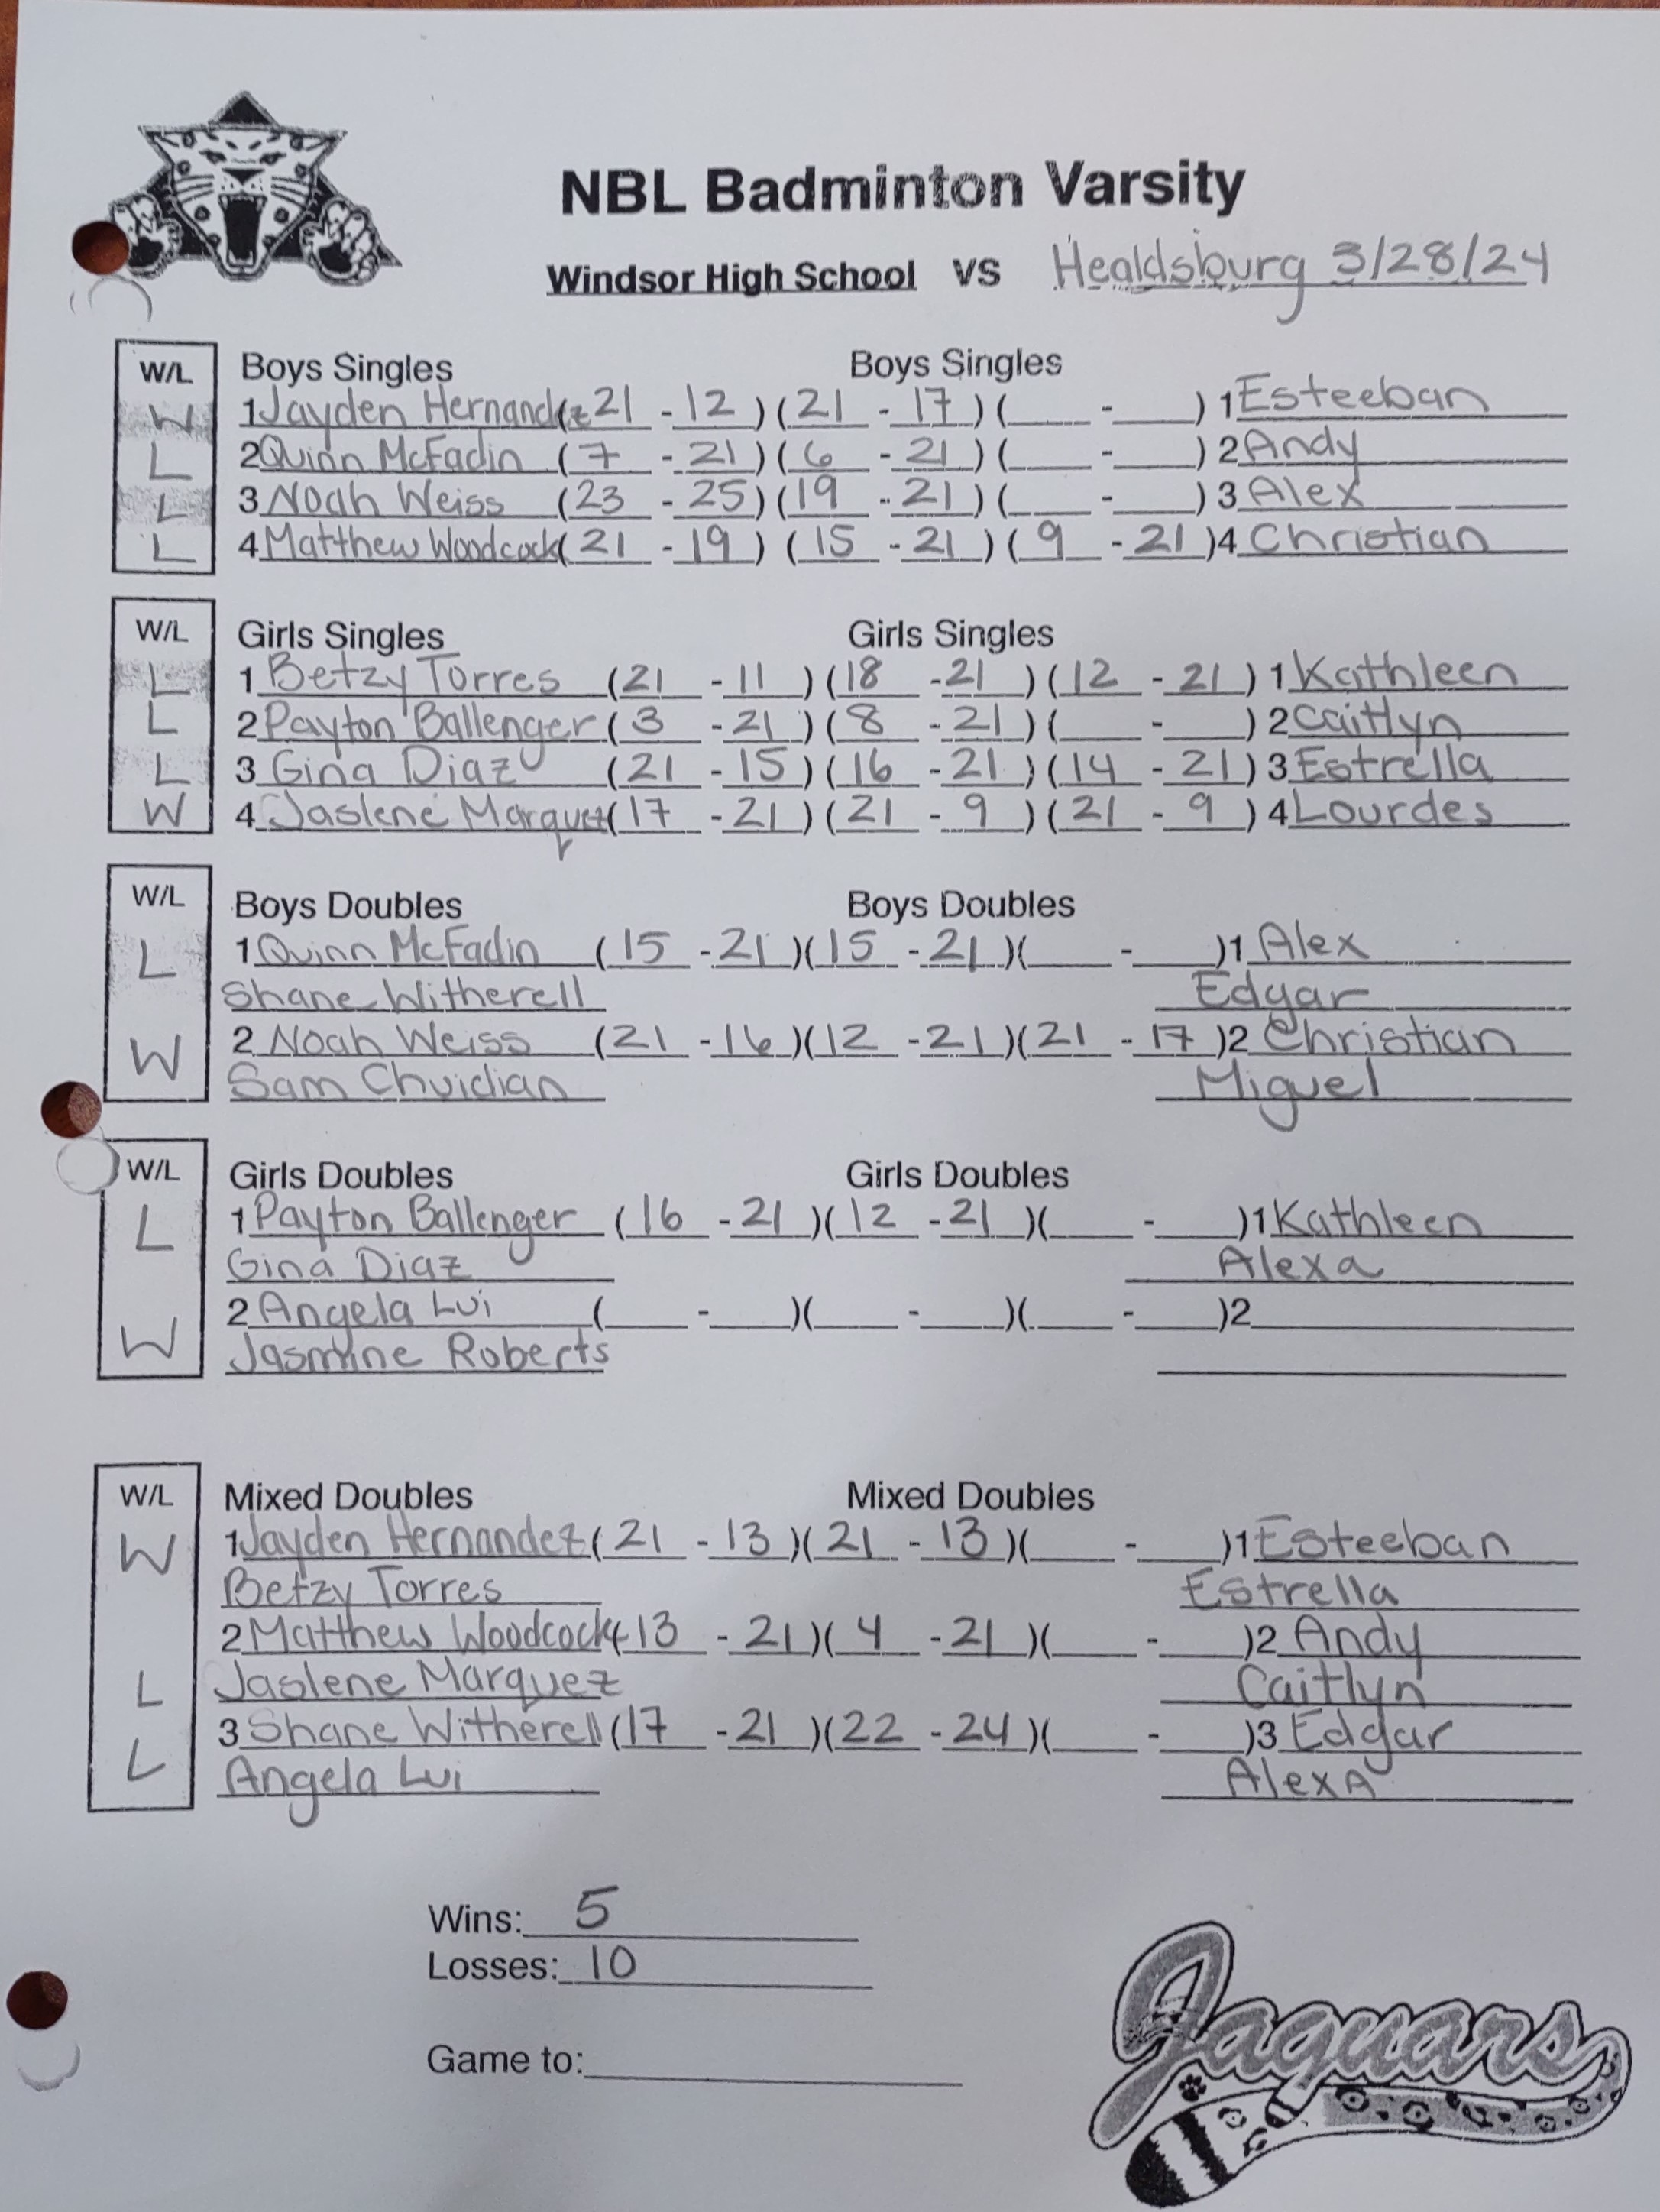 NBL Badminton Varsity
Windsor High School VS Healdsburg 3/28/24
W/L Boys Singles Boys Singles
W 1 Jayden Hernandez (21 - 12) (21 - 17) (___ - ___) 1 Esteeban
L 2 Quinn McFadin (7 - 21) (6 - 21) (___ - ___) 2 Andy
L 3 Noah Weiss (23 - 25) (19 - 21) (___ - ___) 3 Alex
L 4 Matthew Woodcock (21 - 19) (15 - 21) (9 - 21) 4 Christian
W/L Girls Singles Girls Singles
L 1 Betzy Torres (21 - 11) (18 - 21) (12 - 21) 1 Kathleen
L 2 Payton Ballenger (3 - 21) (8 - 21) (___ - ___) 2 Caitlyn
L 3 Gina Diaz (21 - 15) (16 - 21) (14 - 21) 3 Estrella
W 4 Jaslene Marquez (17 - 21) (21 - 9) (21 - 9) 4 Lourdes
W/L Boys Doubles Boys Doubles
L 1 Quinn McFadin (15 - 21)(15 - 21)(___ - ___)1 Alex
Shane Witherell Edgar
W 2 Noah Weiss (21 - 16)(12 - 21)(21 - 17)2 Christian
Sam Chvidian Miguel
W/L Girls Doubles Girls Doubles
L 1 Payton Ballenger (16 - 21)(12 - 21)(___ - ___)1 Kathleen
Gina Diaz Alexa
W 2 Angela Lui (___ - ___)(___ - ___)(___ - ___)2
Jasmine Roberts
W/L Mixed Doubles Mixed Doubles
W 1 Jayden Hernandez (21 - 13)(21 - 13)(___ - ___)1 Esteeban
Betzy Torres Estrella
2 Matthew Woodcock (13 - 21)(4 - 21)(___ - ___)2 Andy
L Jaslene Marquez Caitlyn
3 Shane Witherell (17 - 21)(22 - 24)(___ - ___)3 Edgar
L Angela Lui AlexA
Wins: 5
Losses: 10
Game to:
Jaguars